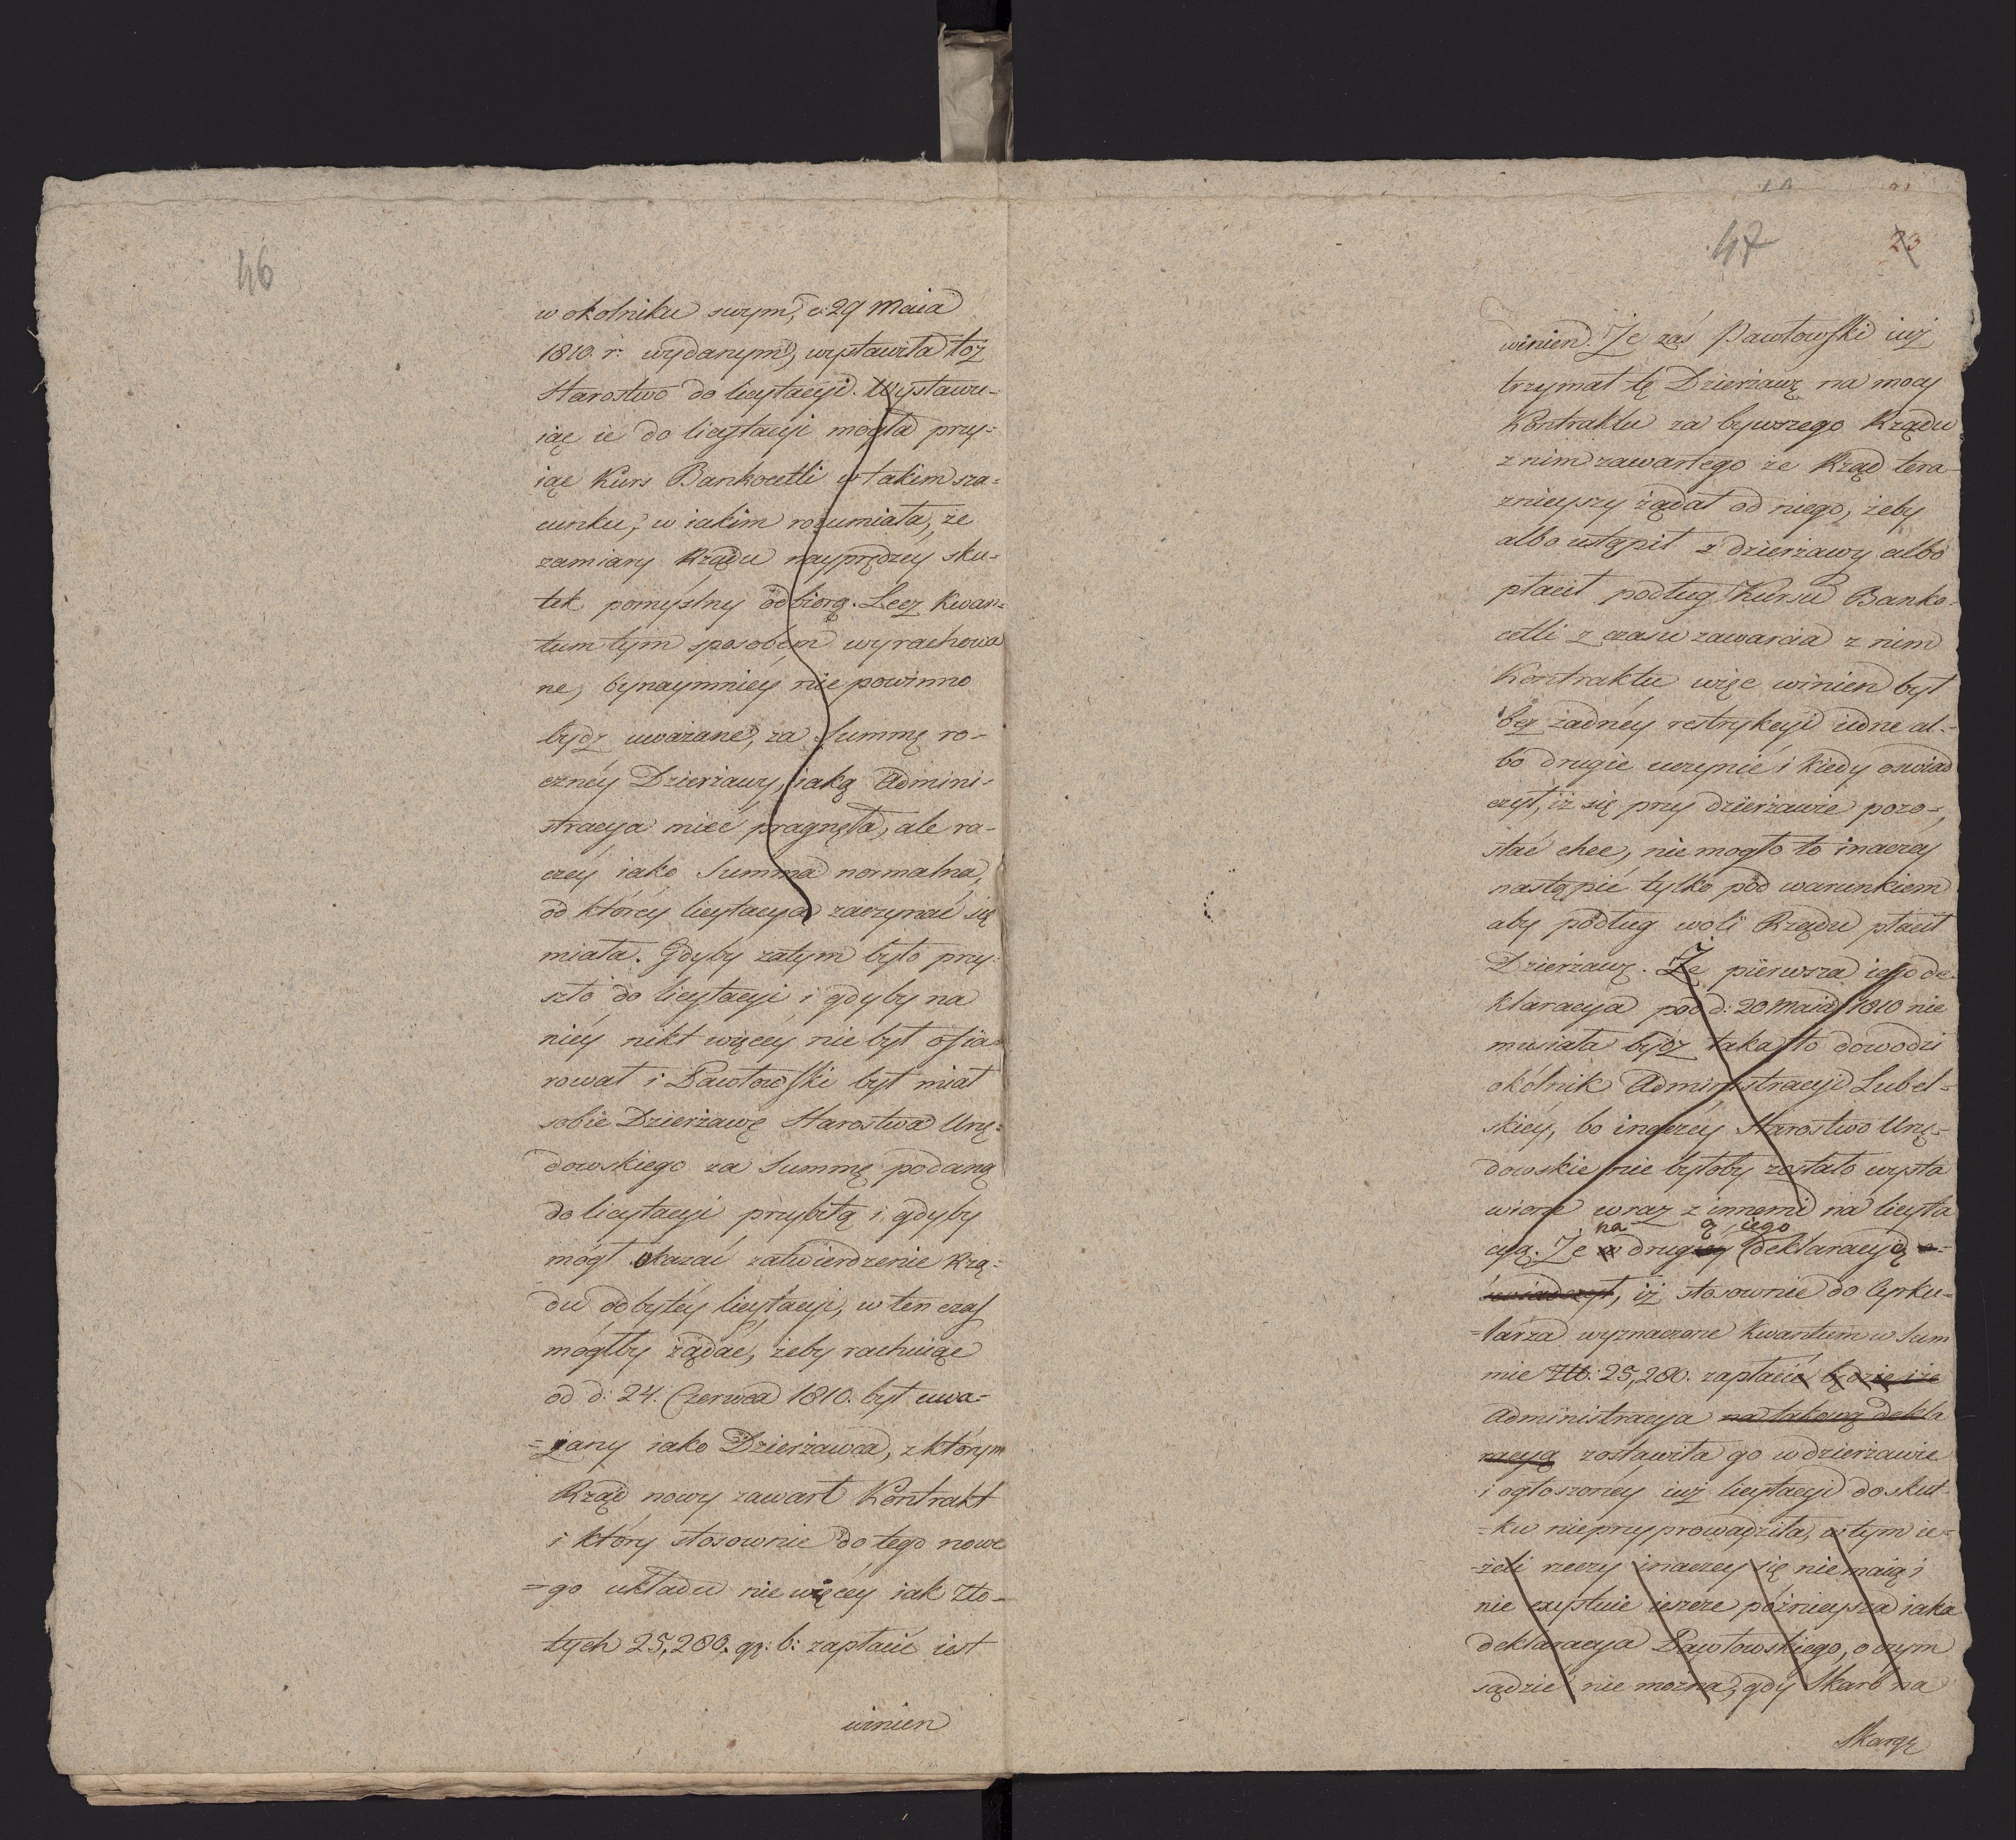 46
w okolniku swym, d: 29 Maia
1810. r: wydanym, wystawiła toż
Starostwo do licytacyi. Wystawu-
iąc ie do licytacyi mogła przy-
iąć Kurs Bankocetli w takim sza-
cunku, w iakim rozumiała, że
zamiary Rządu nayprędzéy sku-
tek pomyślny odbiorą. Lecz Kwan-
tum tym sposobem wyrachowa
ne, bynaymniéy nie powinno
bydź uważane, za Summę ro-
cznéy Dzierżawy, iaką Admini-
stracya mieć pragnęła, ale ra-
czéy iako Summa normalna,
od któréy licytacya zaczynać się
miała. Gdyby zatym było przy-
szło do licytacyi i gdyby na
niéy nikt więcéy nie był ofia-
rował i Pawłowski był miał
sobie Dzierżawę Starostwa Urzę-
dowskiego za Summę podaną
do licytacyi przybitą i gdyby
mógł okazać zatwierdzenie Rzą-
du odbytéy licytacyi, w ten czas
mógłby żądać, żeby rachuiąc
od d: 24. Czerwca 1810. był uwa-
=żany iako Dzierżawca, z którym
Rząd nowy zawarł Kontrakt
i który stosownie do tego nowe
=go układu nie więcéy iak Zło-
tych 25,280. gr: 6: zapłacić iest
winien
47
23
winien. Że zaś Pawłowski iuż
trzymał tę Dzierżawę na mocy
Kontraktu za bywszego Rządu
z nim zawartego że Rząd tera
znieyszy żądał od niego, żeby
albo ustąpił z dzierżawy albo
płacił podług Kursu Banko-
cetli z czasu zawarcia z nim
Kontraktu więc winien był
bez żadnéy restrykcyi iedne al-
bo drugie uczynić i kiedy oświad
czył, iż się przy dzierżawie pozo-
stać chce, nie mogło to inaczéy
nastąpić tylko pod warunkiem
aby podług woli Rządu płacił
Dzierżawę. Że pierwsza iego de-
klaracya pod d: 20 Maia 1810 nie
musiała bydź taka to dowodzi
okólnik Administracyi Lubel-
skiéy, bo inaczéy Starostwo Urzę-
dowskie nie byłoby zostało wysta
wione wraz z innemi na licyta
na ą iego
cyą. Że w drugiéy deklaracyą o-
świadczył, iż stosownie do Cyrku-
=larza wyznaczone Kwantum w Sum
mie Złt: 25,280. zapłacić będzie i że
Administracya na takową dekla
racyą zostawiła go w dzierżawie
i ogłoszonéy iuż licytacyi do skut-
=ku nieprzyprowadziła, w tym ie-
=żeli rzeczy inaczey się nie maią i
nie exystuie ieszcze późnieysza iaka
deklaracya Pawłowskiego, o czym
sądzić nie można, gdy Skarb na
Skargę